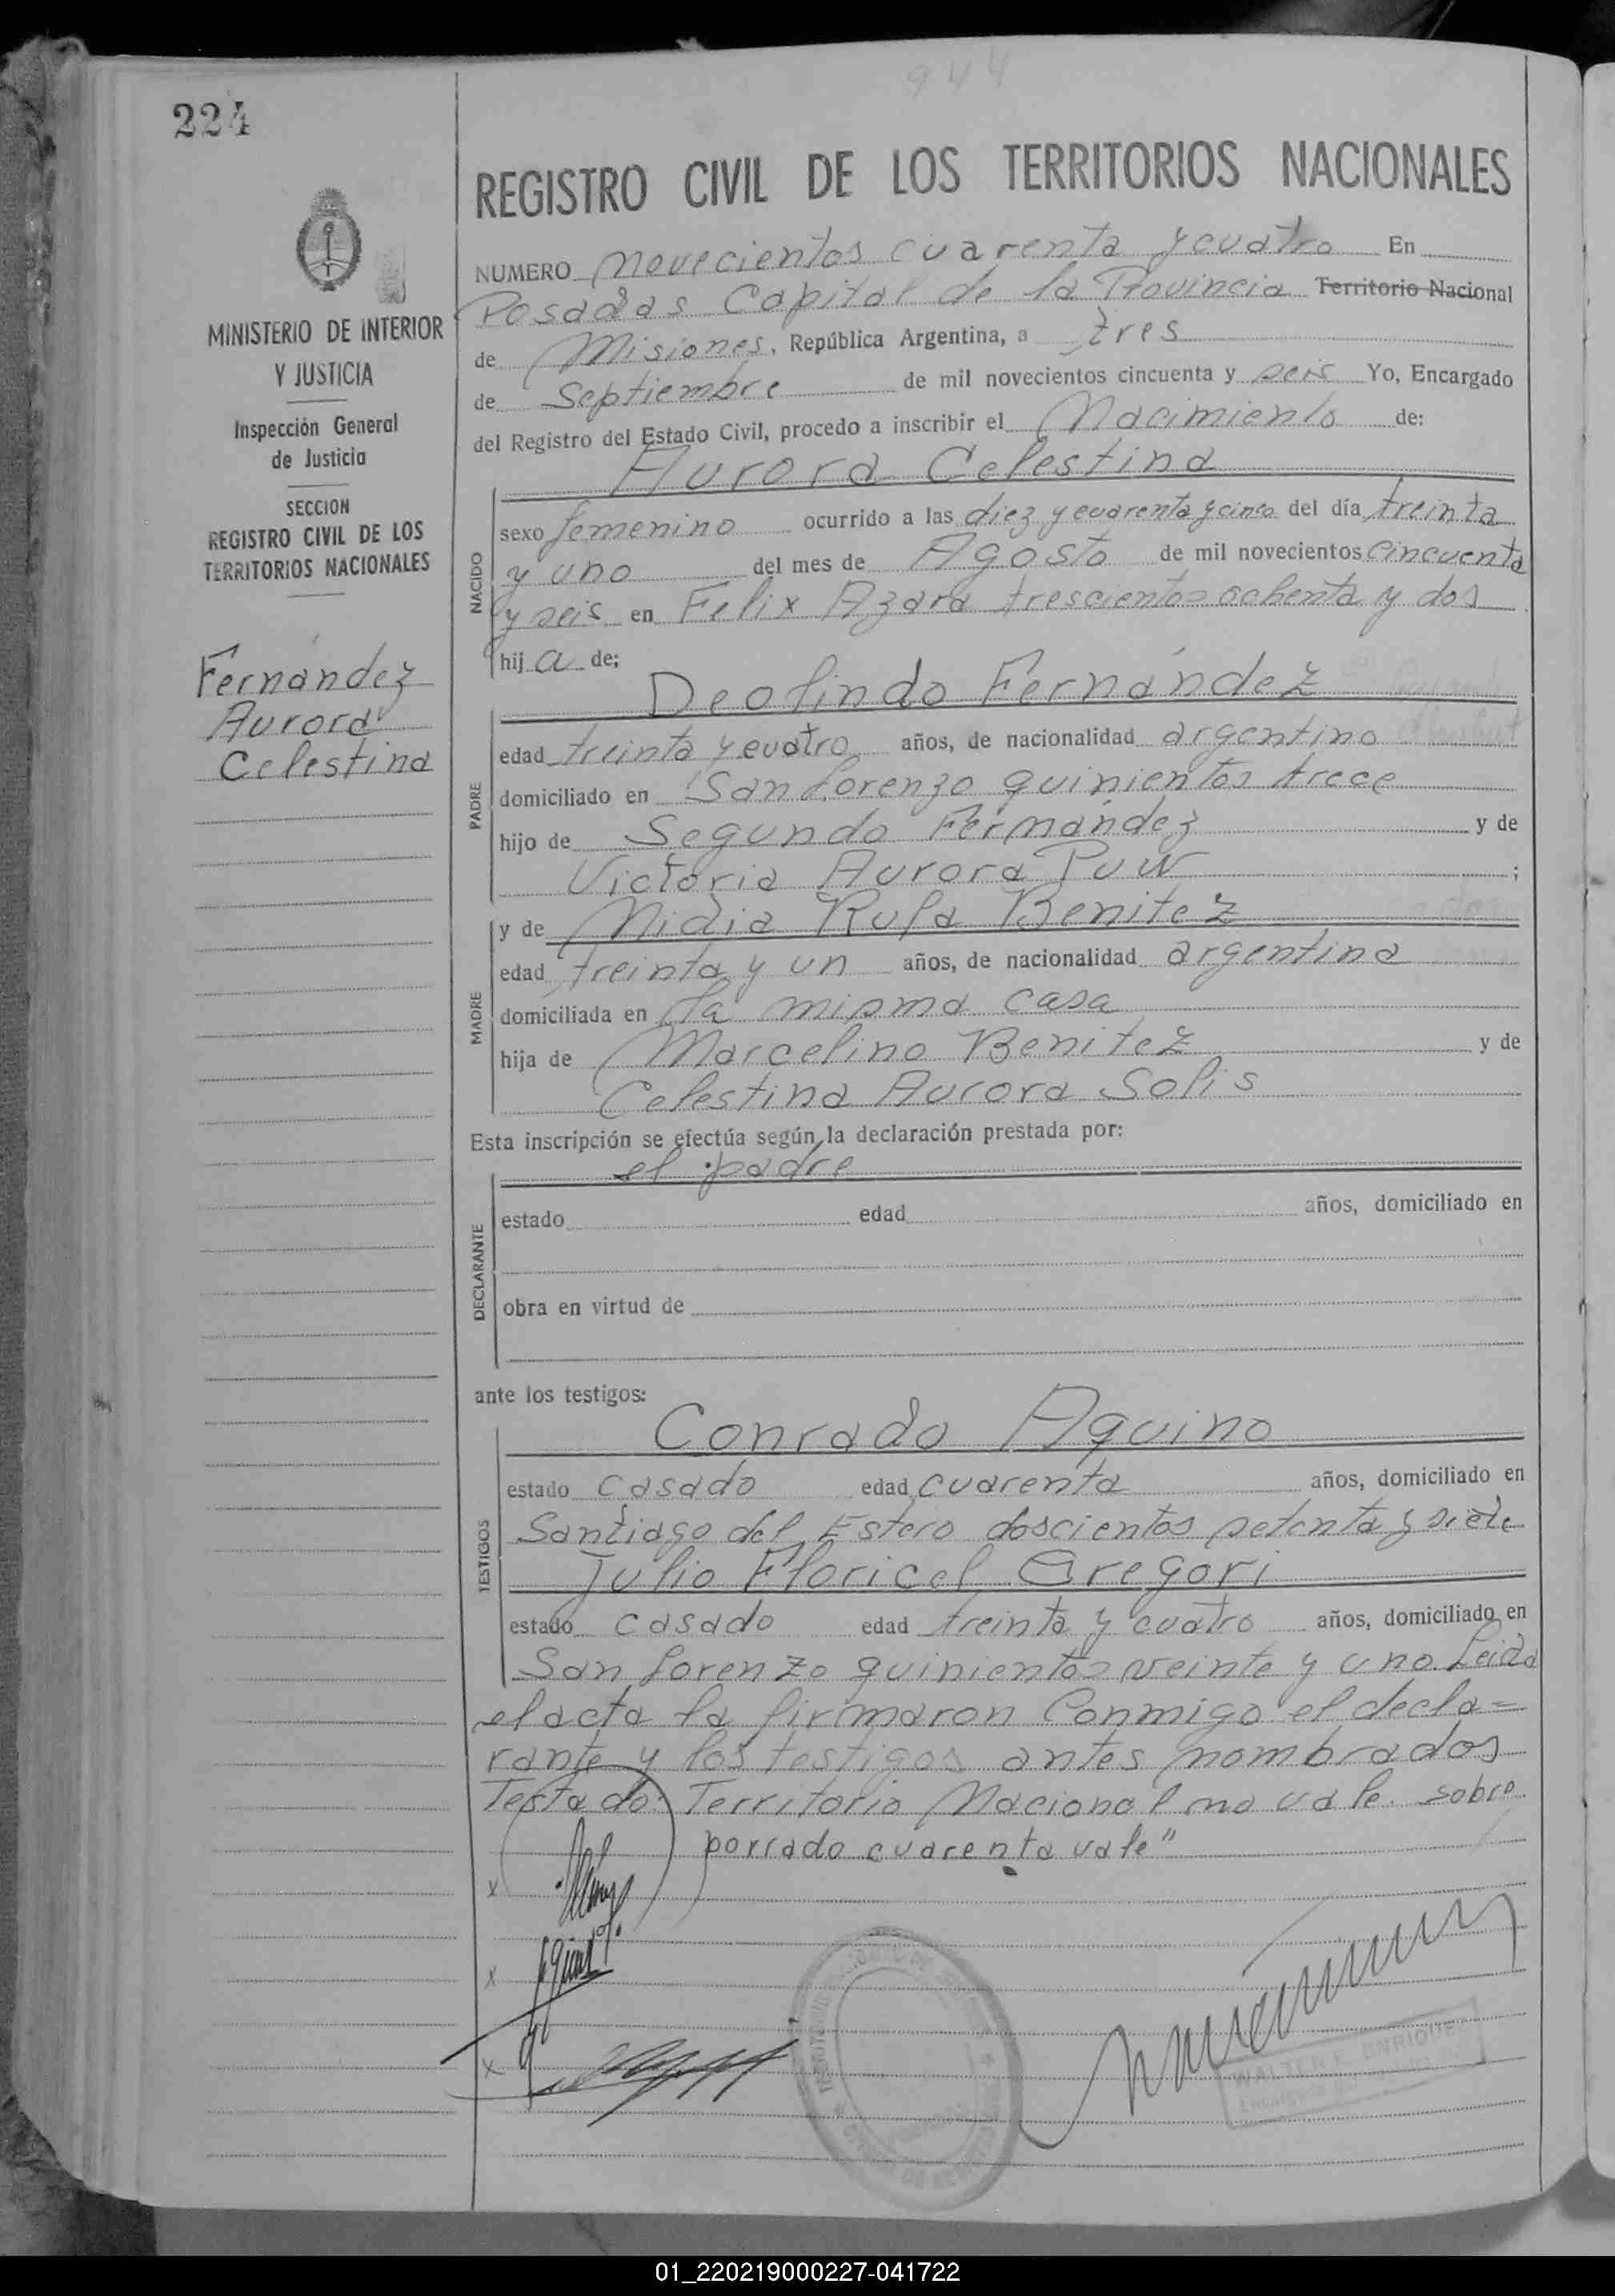 944
224
REGISTRO CIVIL DE LOS TERRITORIOS NACIONALES
MINISTERIO DE INTERIOR
Y JUSTICIA
Inspección General
de Justicia
SECCION
REGISTRO CIVIL DE LOS
TERRITORIOS NACIONALES
Fernández
Aurora
Celestina
NUMERO novecientos cuarenta y cuatro En
Posadas Capital de la Provincia Territorio Nacional
de Misiones, República Argentina, a tres
de Septiembre de mil novecientos cincuenta y seis Yo, Encargado
del Registro del Estado Civil, procedo a inscribir el Nacimiento de:
Aurora Celestina
NACIDO
sexo femenino ocurrido a las diez y cuarenta y cinco del día treinta
y uno del mes de Agosto de mil novecientos cincuenta
y seis en Felix Azara trescientos ochenta y dos
hij a de:
Deolindo Fernández
PADRE
edad treinta y cuatro años, de nacionalidad argentino
domiciliado en San Lorenzo quinientos trece
hijo de Segundo Fernández y de
Victoria Aurora Puw ;
y de Nidia Rufa Benitez
MADRE
edad treinta y un años, de nacionalidad argentina
domiciliada en la misma casa
hija de Marcelino Benitez y de
Celestina Aurora Solis
Esta inscripción se efectúa según la declaración prestada por:
el padre
DECLARANTE
estado edad años, domiciliado en
obra en virtud de
ante los testigos:
Conrado Aquino
TESTIGOS
estado casado edad cuarenta años, domiciliado en
Santiago del Estero doscientos setenta y siete
Julio Floricel Gregori
estado casado edad treinta y cuatro años, domiciliado en
San Lorenzo quinientos veinte y uno. Leida
el acta la firmaron Conmigo el decla=
rante y los testigos antes nombrados
Testado: Territorio Nacional no vale. sobre
borrado cuarenta vale"
x
x
x
WALTER E. ENRIQUE
01_220219000227-041722